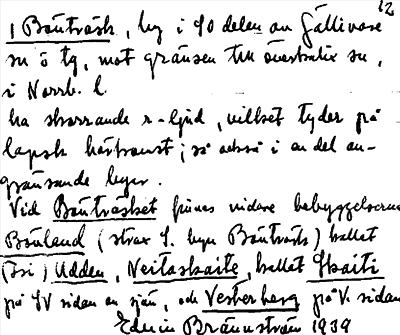 12
1 Bönträsk, by i SO delen av Gällivare
sn o tg, mot gränsen till överkalix sn,
i Norrb. l.
ha skorrande r-ljud, vilket tyder på
lapsk härkomst; så också i en del an-
gränsande byar.
Vid Bönträsket finnes vidare bebyggelserna
Bönland (strax S. byn Bönträsk) kallat
Udden, Neitaskaite, kallat Skaiti
på SV sidan av sjön, och Vesterberg på V. sidan
Edvin Brännström 1939